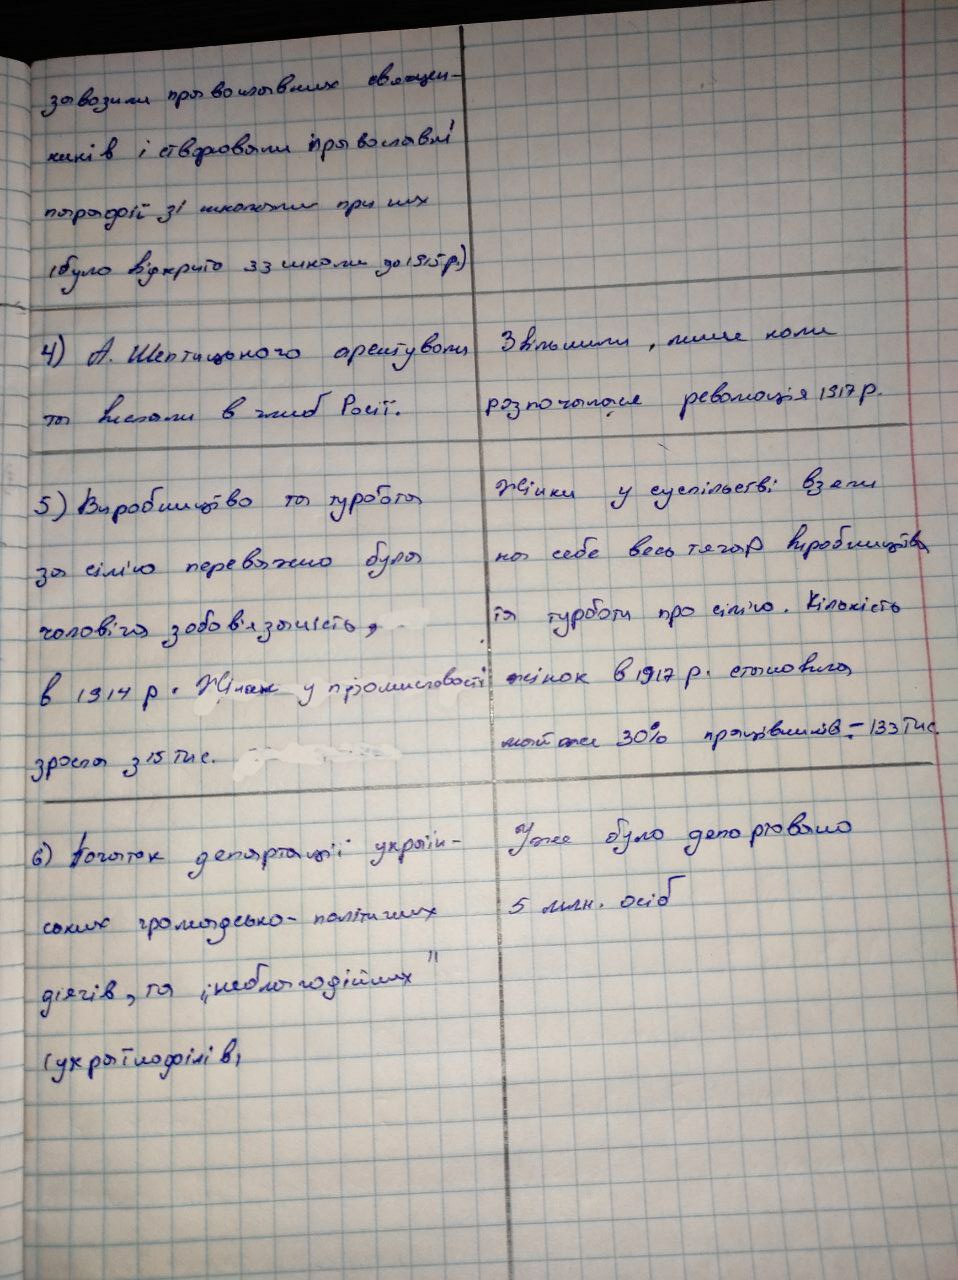 завозили православних священ-
ників і створювали православні
парафії зі школами при них
(було відкрито 33 школи до 1915 р.)
4) А. Шептицького арештували
та вислали в глиб Росії.
Звільнили, лише коли
розпочалася революція 1917 р.
5) Виробництво та турбота
за сім'ю переважно була
чоловіча зобов'язаність,
в 1914 р. Жінок у промисловості
зросла з 15 тис.
Жінки у суспільстві взяли
на себе весь тягар виробництва
та турботи про сім'ю. Кількість
жінок в 1917 р. становила
майже 30% працівників - 133 тис.
6) Початок депортації україн-
ських громадсько-політичних
діячів, та „неблагодійних"
(українофілів)
Уже було депортовано
5 млн. осіб